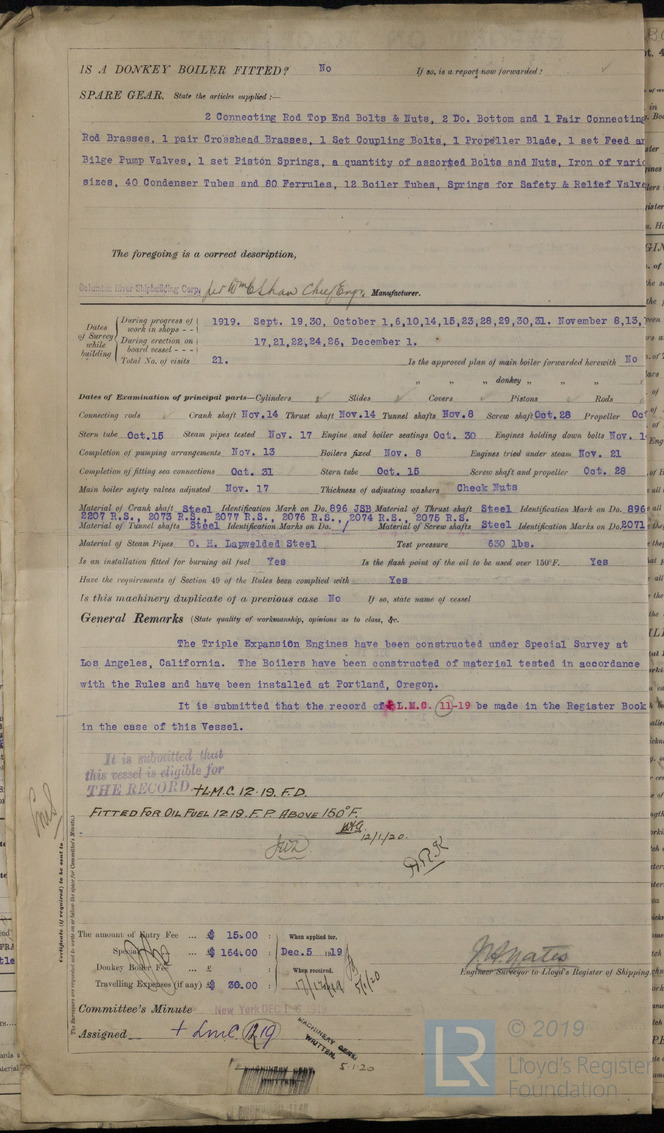 IS A DONKEY BOILER FITTED? No If so, is a report now forwarded? ✓
SPARE GEAR. State the articles supplied :—
2 Connecting Rod Top End Bolts & Nuts, 2 Do. Bottom and 1 Pair Connecting
Rod Brasses, 1 pair Crosshead Brasses, 1 Set Coupling Bolts, 1 Propeller Blade, 1 set Feed an
Bilge Pump Valves, 1 set Piston Springs, a quantity of assorted Bolts and Nuts, Iron of vario
sizes, 40 Condenser Tubes and 80 Ferrules, 12 Boiler Tubes, Springs for Safety & Relief Valve
The foregoing is a correct description,
Columbia River Shipbuilding Corp. per Wm C Shaw Chief Engr. Manufacturer.
Dates of Survey while building
During progress of work in shops - - 1919. Sept. 19,30, October 1,6,10,14,15,23,28,29,30,31. November 8,13,
During erection on board vessel - - - 17,21,22,24,26, December 1.
Total No. of visits 21. Is the approved plan of main boiler forwarded herewith No
" " " donkey " " "
Dates of Examination of principal parts—Cylinders ✓ Slides ✓ Covers ✓ Pistons ✓ Rods ✓
Connecting rods ✓ Crank shaft Nov.14 Thrust shaft Nov.14 Tunnel shafts Nov.8 Screw shaft Oct.28 Propeller Oct
Stern tube Oct.15 Steam pipes tested Nov. 17 Engine and boiler seatings Oct. 30 Engines holding down bolts Nov. 1
Completion of pumping arrangements Nov. 13 Boilers fixed Nov. 8 Engines tried under steam Nov. 21
Completion of fitting sea connections Oct. 31 Stern tube Oct. 15 Screw shaft and propeller Oct. 28
Main boiler safety valves adjusted Nov. 17 Thickness of adjusting washers Check Nuts
Material of Crank shaft Steel Identification Mark on Do. 896 JSB Material of Thrust shaft Steel Identification Mark on Do. 896
2207 R.S., 2073 R.S., 2077 R.S., 2076 R.S., 2074 R.S., 2075 R.S.
Material of Tunnel shafts Steel Identification Marks on Do. / Material of Screw shafts Steel Identification Marks on Do. 2071
Material of Steam Pipes O. H. Lapwelded Steel Test pressure 630 lbs.
Is an installation fitted for burning oil fuel Yes Is the flash point of the oil to be used over 150°F. Yes
Have the requirements of Section 49 of the Rules been complied with Yes
Is this machinery duplicate of a previous case No If so, state name of vessel
General Remarks (State quality of workmanship, opinions as to class, &c.
The Triple Expansion Engines have been constructed under Special Survey at
Los Angeles, California. The Boilers have been constructed of material tested in accordance
with the Rules and have been installed at Portland, Oregon.
It is submitted that the record of + L.M.C. 11-19 be made in the Register Book
in the case of this Vessel.
It is submitted that
this vessel is eligible for
THE RECORD. + L.M.C. 12.19. F.D.
FITTED FOR OIL FUEL 12.19. F.P. ABOVE 150°F.
12/1/20.
The amount of Entry Fee ... $ 15.00 : When applied for,
Special ... $ 164.00 : Dec.5 1919
Donkey Boiler Fee ... £ : When received,
Travelling Expenses (if any) $ 30.00 : 5/1/20
Engineer Surveyor to Lloyd's Register of Shipping.
Committee's Minute New York DEC 1919
Assigned + LMC 12 19
MACHINERY CERT.
WRITTEN.
5.1.20
LR © 2019
Lloyd's Register
Foundation